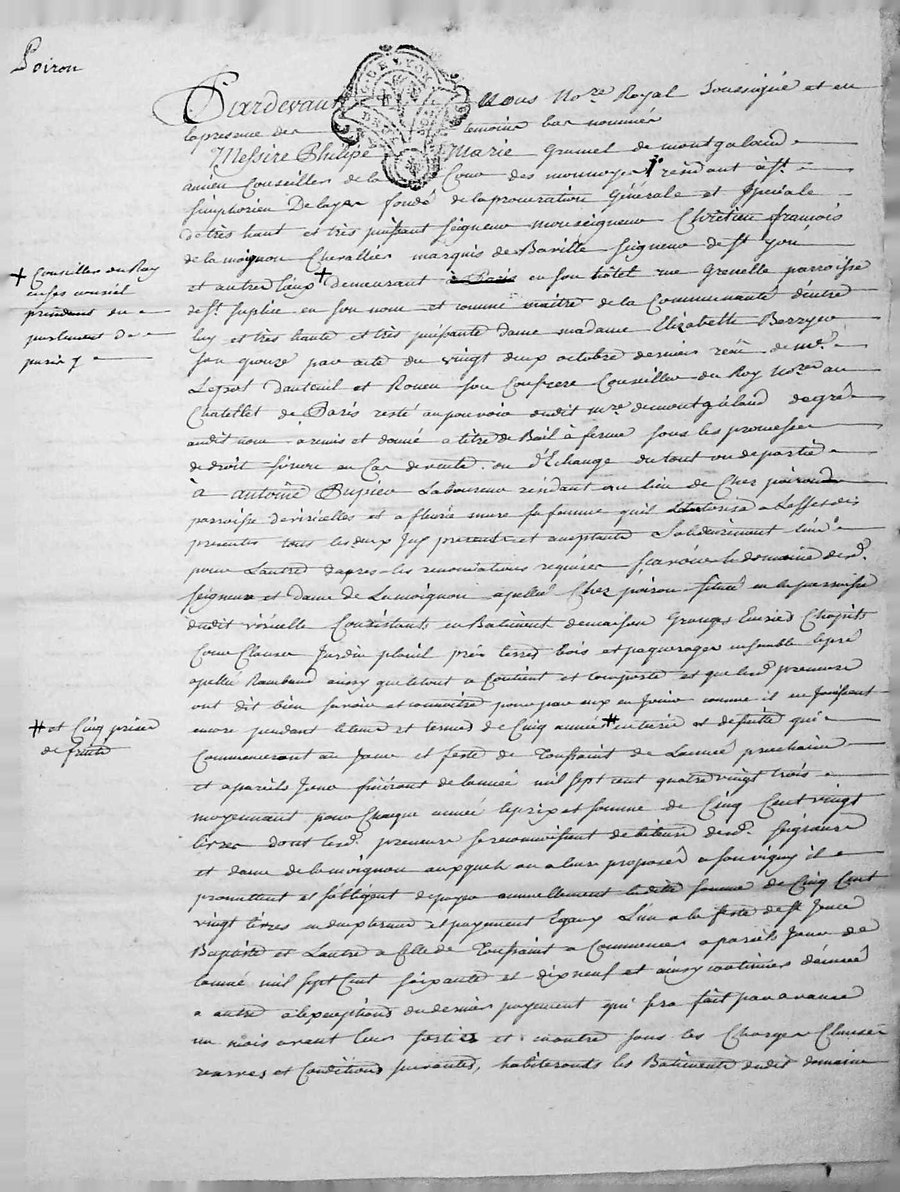 Poiron
Pardevant Nous No.re Royal Soussigné et en
la presence des temoins bas nommés
G. DE LYON
Messire Philipe Marie Grumel de montgaland
ancien Conseiller de la Cour des monnoyes residant à St
Simphorien Delayer fondé de la procuration Générale et Speciale
de très haut et très puissant Seigneur monseigneur Chrétien françois
de la moignon Chevallier marquis de Baville Seigneur de St yon
et autres Lieux + demeurant à Paris en son hôtel rue Grenelle parroisse
+ Conseiller du Roy
en ses conseils
president en
parlement de
paris
de St Sulpice en son nom et comme maitre de la Communauté d'entre
luy et très haute et très puissante dame madame Elizabette Berryer
Son epouze par acte du vingt deux octobre dernier recu de Me
Lepot Dauteuil et Rouen son Confrere Conseiller du Roy No.res au
Chatellet de Paris resté au pouvoir dudit mre de montgaland de gré
audit nom a remis et donné a titre de Bail à ferme sous les promesses
de droit sinon au Cas de vente ou d'Echange du tout ou de partie
à antoine Dupieu Laboureur résidant au lieu de Chez poiron
parroisse de viricelles et a fleurie mure sa femme qu'il autorise a L'effet des
presentes tous les deux Icy presents et aceptants Solidairement l'un
pour L'autre d'apres les renonciations requises Scavoir le domaine desd.
seigneur et dame de Lamoignon apellé Chez poiron situé en la parroisse
dudit viricelle Consistant en Batiment de maison Granges Ecuries Chapits
Cour Clauses Jardin plasil prés terres bois et paquerages ensemble le pré
apellé Rambaud aussy que le tout se Contient et comporte et que lesd. preneurs
ont dit bien scavoir et connoitre pour par eux en Jouir comme il en Jouissent
encore pendant le tems et termes de Cinq années # entieres et de suitte qui
# et Cinq prises
de fruits
Commenceront au Jour et feste de Toussaint de L'année prochaine
et a pareils Jour finiront de l'année mil sept cent quatre vingt trois
moyennant pour Chaque année le prix et somme de Cinq Cent vingt
livres dont lesd. preneurs se reconnoissent debiteurs desd. Seigneurs
et dame de la moignon auxquels ou a leur proposé a souvigny il
promettent et s'obligent de payer annuellement ladite somme de Cinq Cent
vingt livres en deux termes et payement Egaux L'un a la feste de St Jean
Baptiste et L'autre a Celle de Toussaint a Commencer a pareils Jour de
l'année mil sept Cent soixante et dix neuf et ainsy continuer d'année
a autre à l'exception du dernier payement qui sera fait par avance
un mois avant leur sortie et en outre sous les Charges Clauses
reserves et Conditions suivantes, habiteronds les Batiments dudit domaine